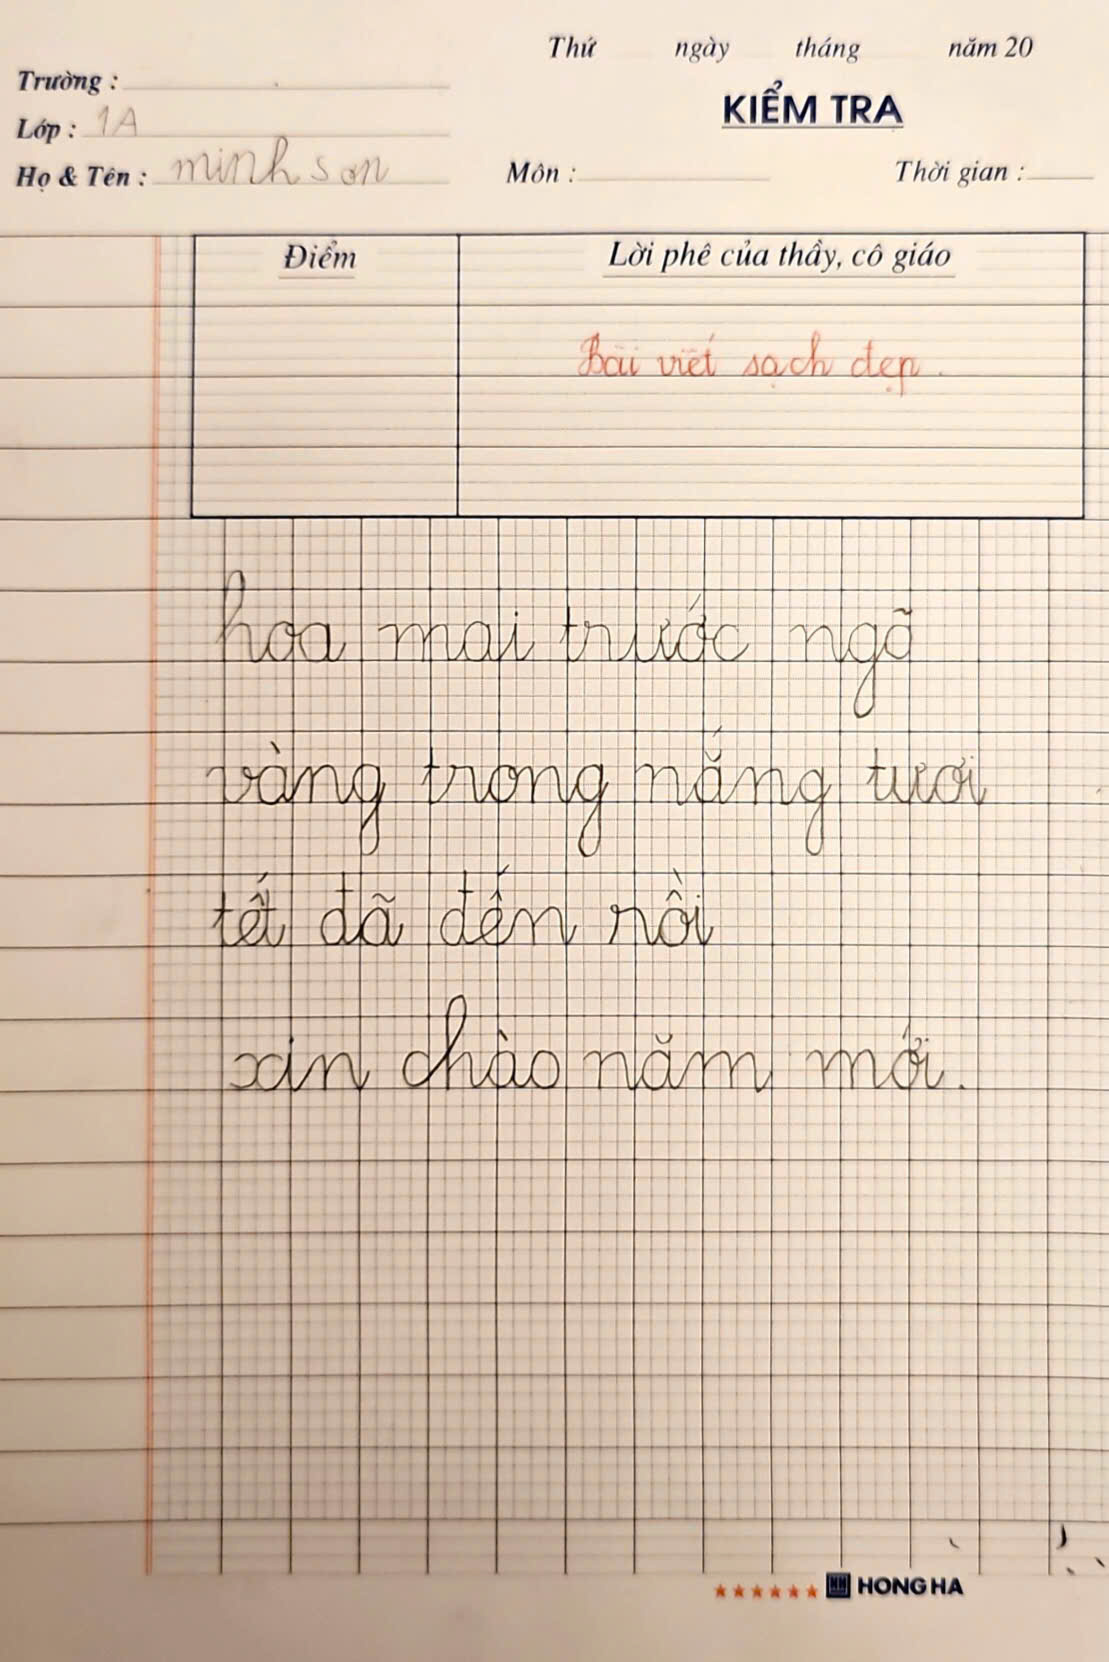 Thứ ngày tháng năm 20
Trường :
KIỂM TRA
Lớp : 1A
Họ & Tên : minh sơn
Môn :
Thời gian :
Điểm
Lời phê của thầy, cô giáo
Bài viết sạch đẹp.
hoa mai trước ngõ
vàng trong nắng tươi
tết đã đến rồi
xin chào năm mới.
HONG HA